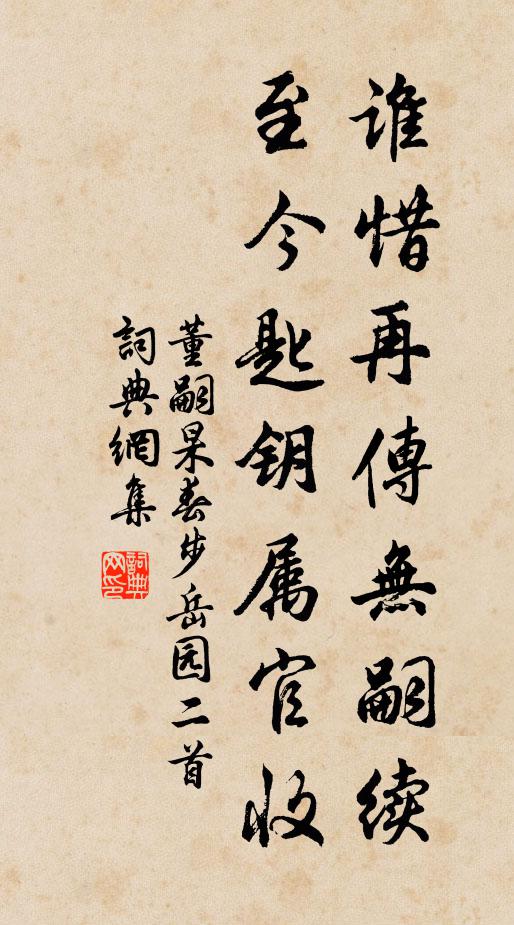 谁惜再傳無嗣续
至今匙钥属官收
董嗣杲春步岳园二首
詞典網集
詞典网印